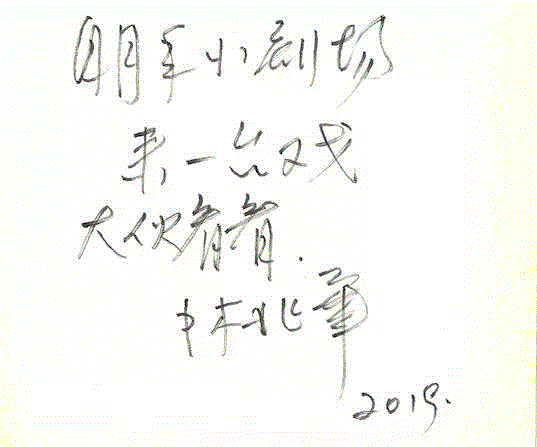 明年小剧场
来一台戏
大伙看看.
林兆華
2019.